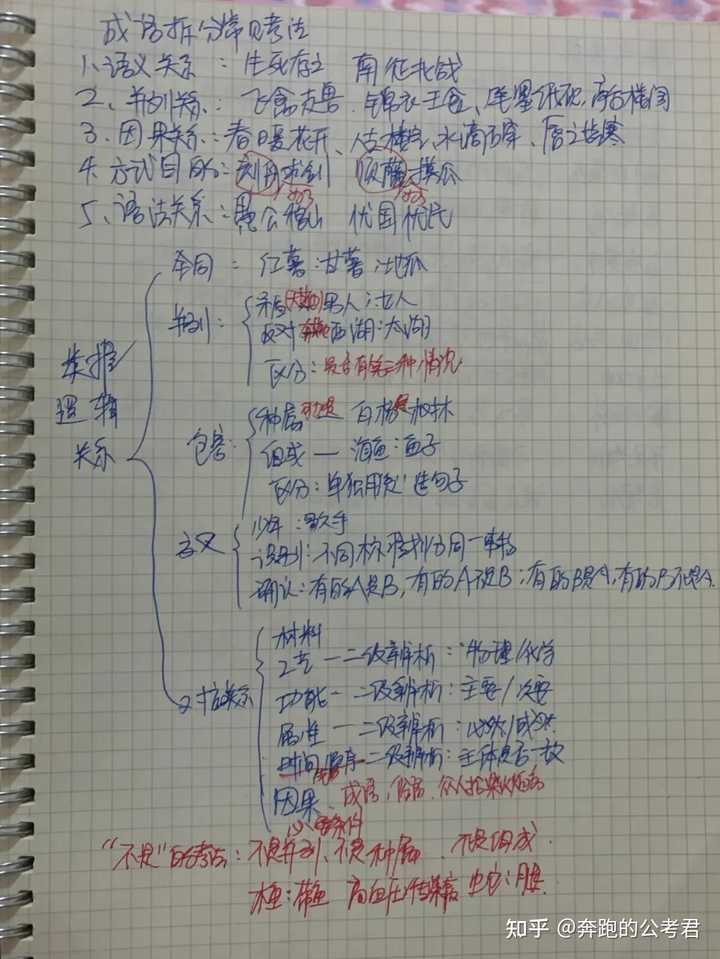 成语拆分常见考法
1、语义关系：生死存亡 南征北战
2、并列关系：飞禽走兽、锦衣玉食、笔墨纸砚、亭台楼阁
3、因果关系：春暖花开、人去楼空、水滴石穿、唇亡齿寒
4、方式目的：刻舟求剑 顺藤摸瓜
方式 方式
5、语法关系：愚公移山 忧国忧民
类推逻辑关系
全同：红薯：甘薯：地瓜
并列：
矛盾 男人：女人
反对 西湖：太湖
区分：是否有第三种情况
包含：
种属 白杨 树林
组成 — 鱼：鱼子
区分：单独用“是”造句子
交义
少年：歌手
识别：不同标准划分同一事物
确认：有的A是B，有的A不是B；有的B是A，有的B不是A.
对应关系
材料
工艺 — 二级辨析：物理/化学
功能 — 二级辨析：主要/次要
属性 — 二级辨析：必然/或然
时间顺序 — 二级辨析：主体是否一致
因果、成语，俗语，众人拾柴火焰高
必要条件
“不是”的考法：不是并列、不是种属 不是组成.
鱼 高血压：传染病
知乎 @奔跑的公考君